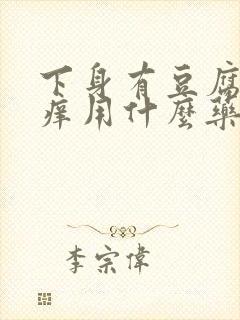 下身有豆腐
痒用什麼藥
李宗偉